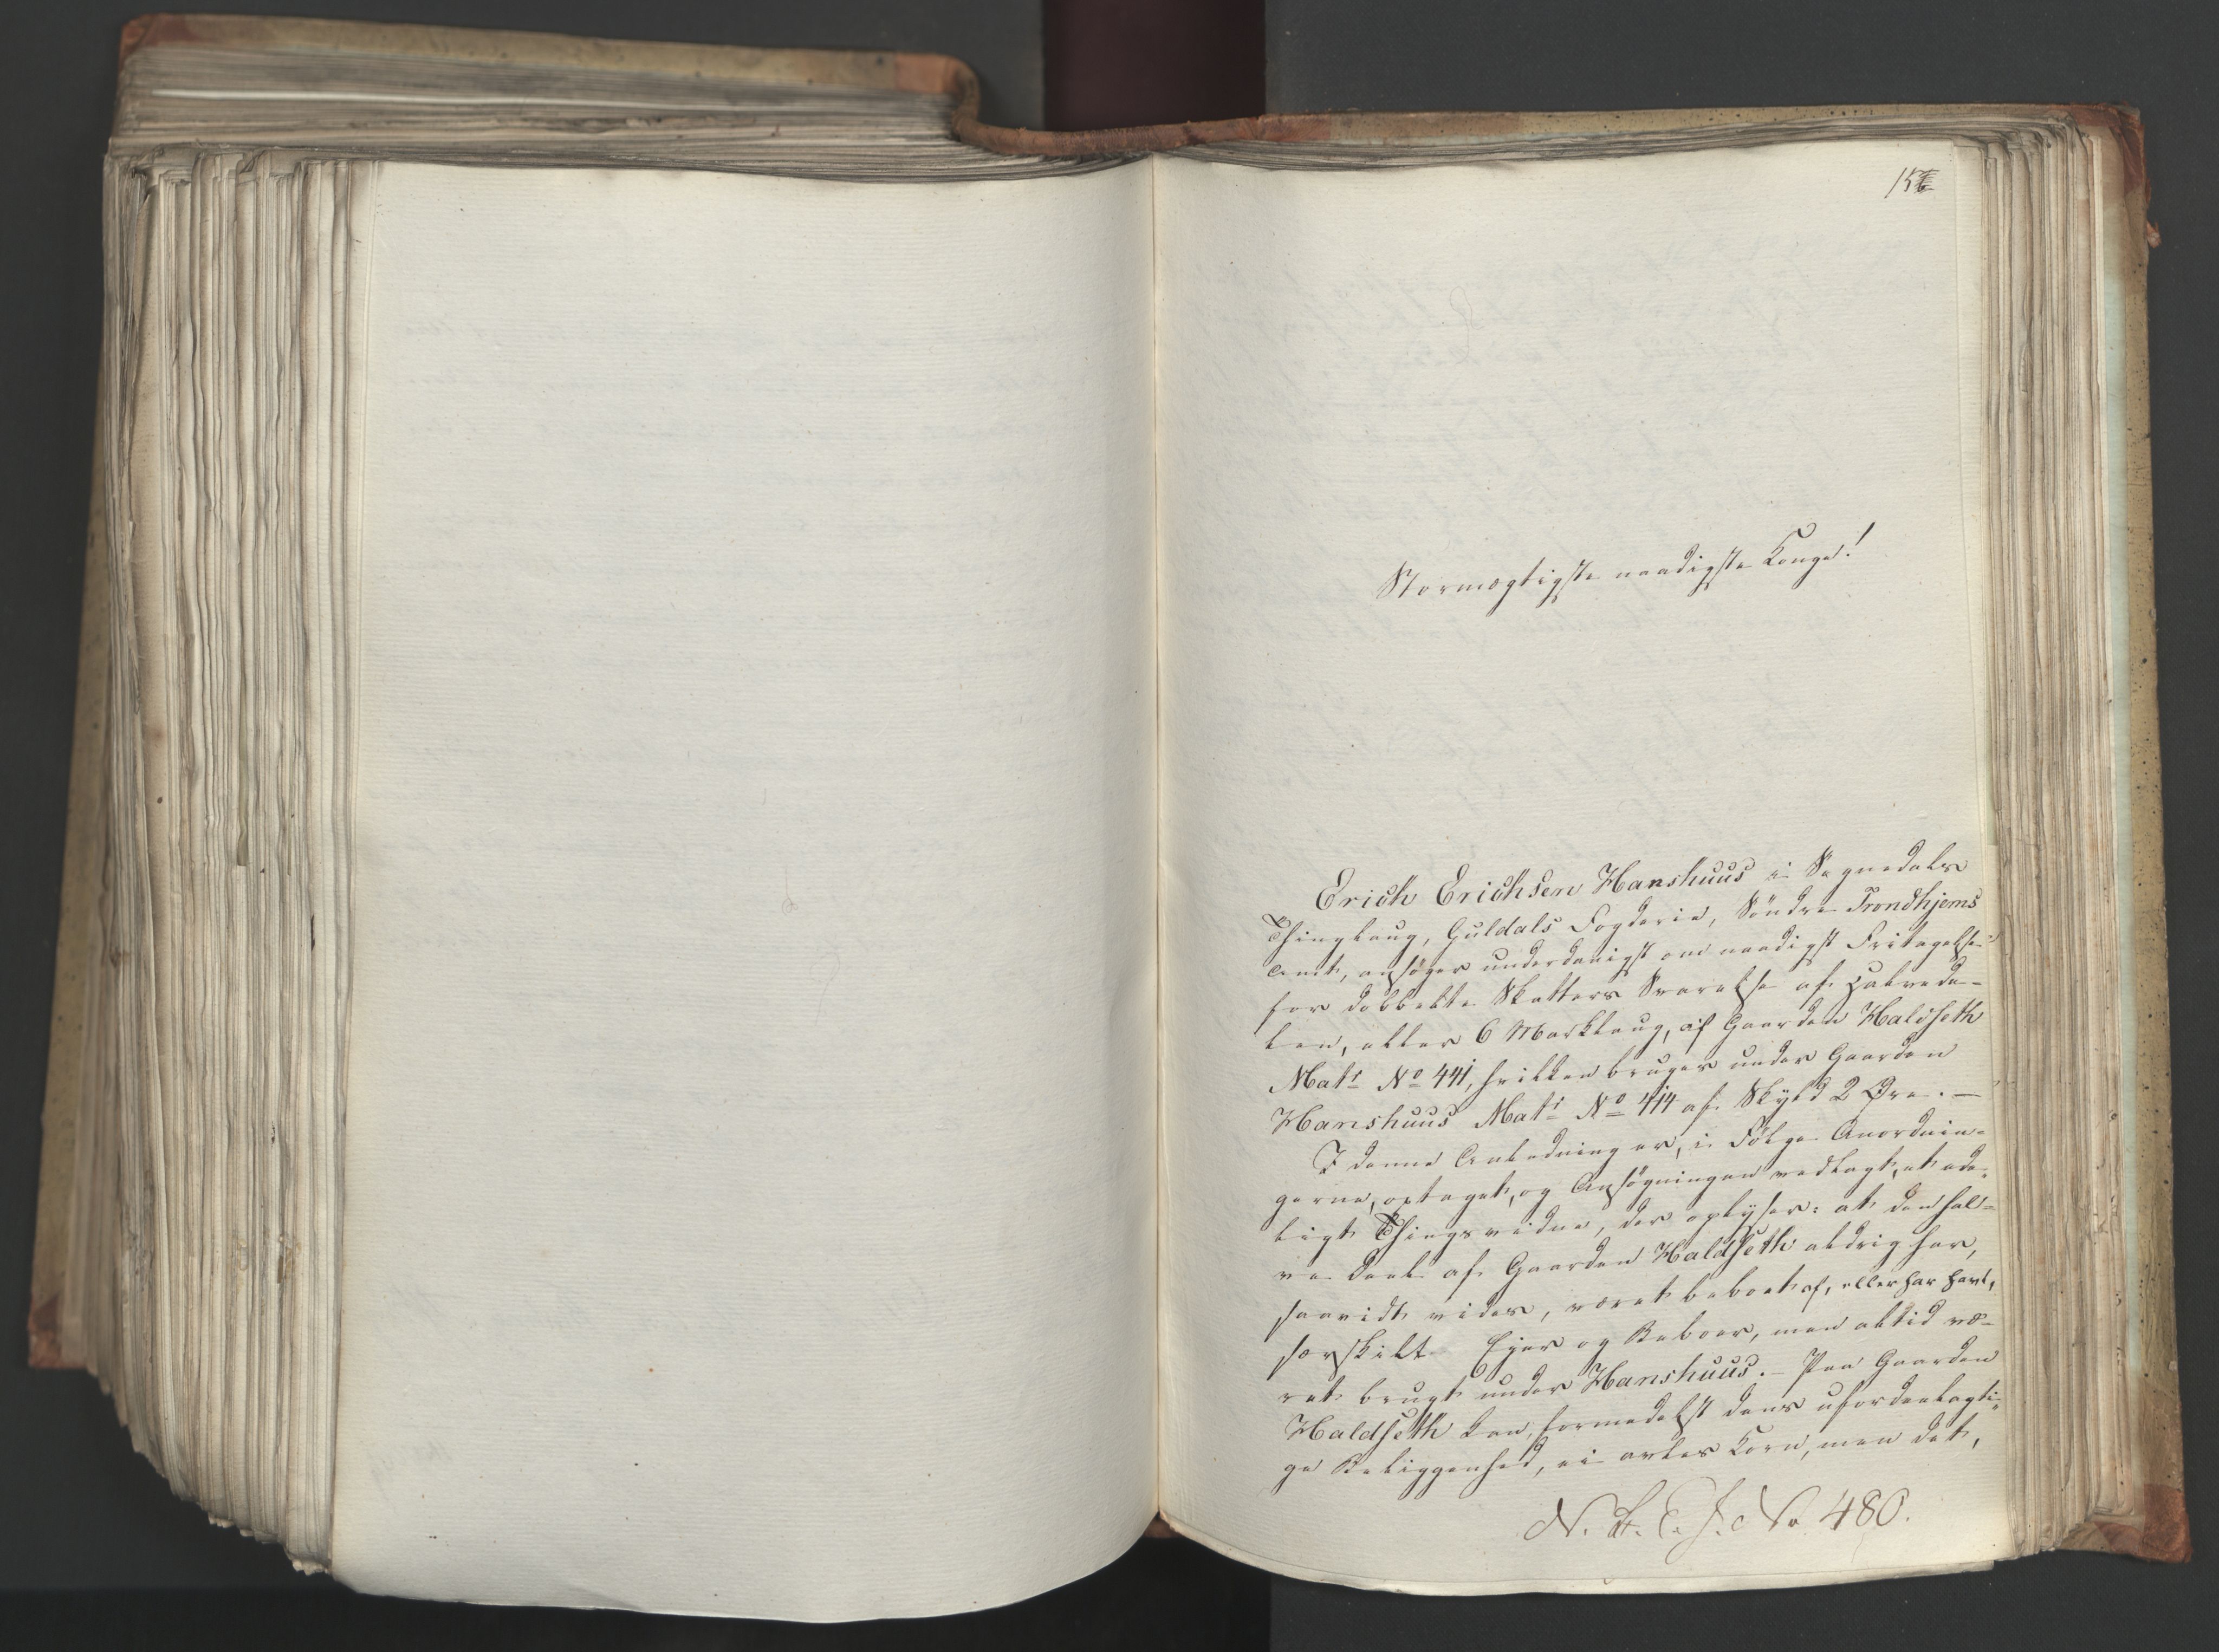 Stormægtigste naadigste Konge!
Erich Erichsen Hanshuus i Sognedals
Thinglaug, Guldals Fogderie, Söndre Trondhjems
Amt, ansöger underdanigst om naadigst Fritagelse
for dobbelte Skatters Svarelse af Halvede-
len, eller 6 Marklaug, af Gaarden Haldseth
Matr No 441, hvilken bruges under Gaarden
Hanshuus Matr No 414 af Skyld 2 Øre. —
I denne Anledning er, i Fölge Anordnin-
gerne, optaget, og Ansögningen vedlagt, et ede-
ligt Thingsvidne, der oplyser: at den hal-
ve Deel af Gaarden Haldseth aldrig har,
saavidt vides, været beboet af, eller har havt,
særskilt Ejer og Beboer, men altid væ-
ret brugt under Hanshuus. – Paa Gaarden
Haldseth kan, formedelst dens ufordeelagti-
ge Beliggenhed, ei avles Korn, men det,
No 480.